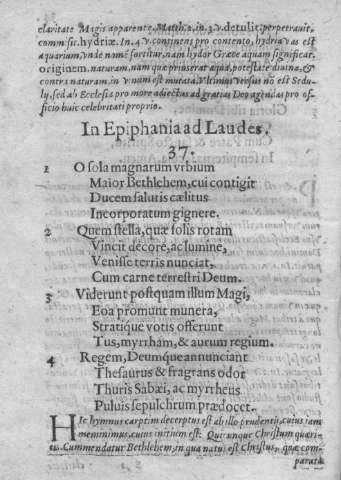 claritate Magis apparente, Matth. 2. in. 3. v. detulit, perpetrauit,
commisit. hydriæ. In. 4. v. continens pro contento, hydria v as est
aquarium, vnde nomẽ sortitur, nam hydor Græce aquam significat.
originem. naturam, nam quæ prius erat aqua, potestate diuina, &
contra naturam, in vinum est mutata. Vltimus versus nõ est Sedu-
lij, sed ab Ecclesia pro more adiectus ad gratias Deo agendas pro of-
ficio huic celebritati proprio.
In Epiphania ad Laudes.
37.
1 O sola magnarum vrbium
Maior Bethlehem, cui contigit
Ducem salutis cælitus
Incorporatum gignere.
2 Quem stella, quæ solis rotam
Vincit decore, ac lumine,
Venisse terris nunciat,
Cum carne terrestri Deum.
3 Viderunt postquam illum Magi,
Eoa promunt munera,
Stratique votis offerunt
Tus, myrrham, & aurum regium.
4 Regem, Deumque annunciant
Thesaurus & fragrans odor
Thuris Sabæi, ac myrrheus
Puluis sepulchrum prædocet.
HIc hymnus carptim decerptus est ab illo prudentij, cuius iam
meminimus, cuius initium est: Quicunque Christum quæri-
tis. Commendatur Bethlehem, in qua natus est Christus, quæ com-
parata